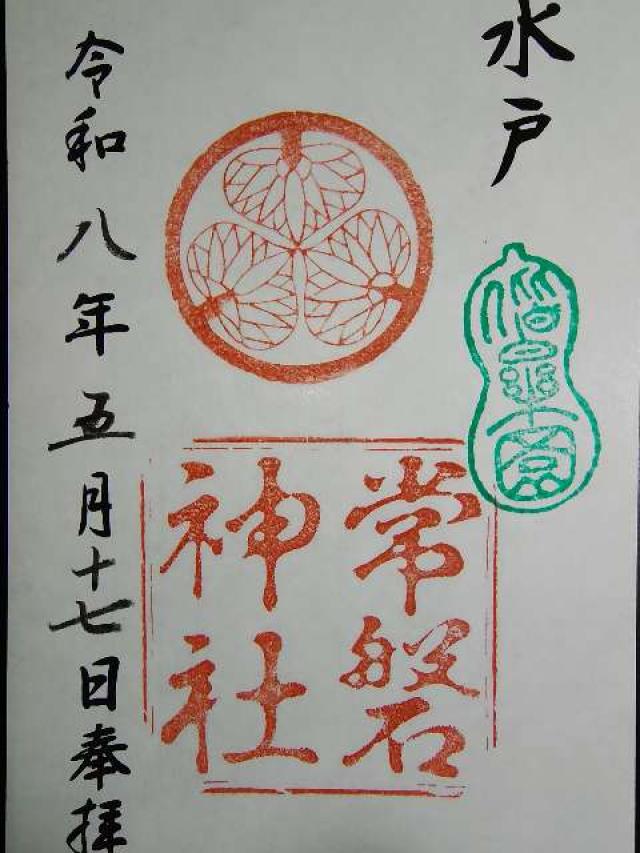 水戸
偕楽園
常磐
神社
令和八年五月十七日奉拝